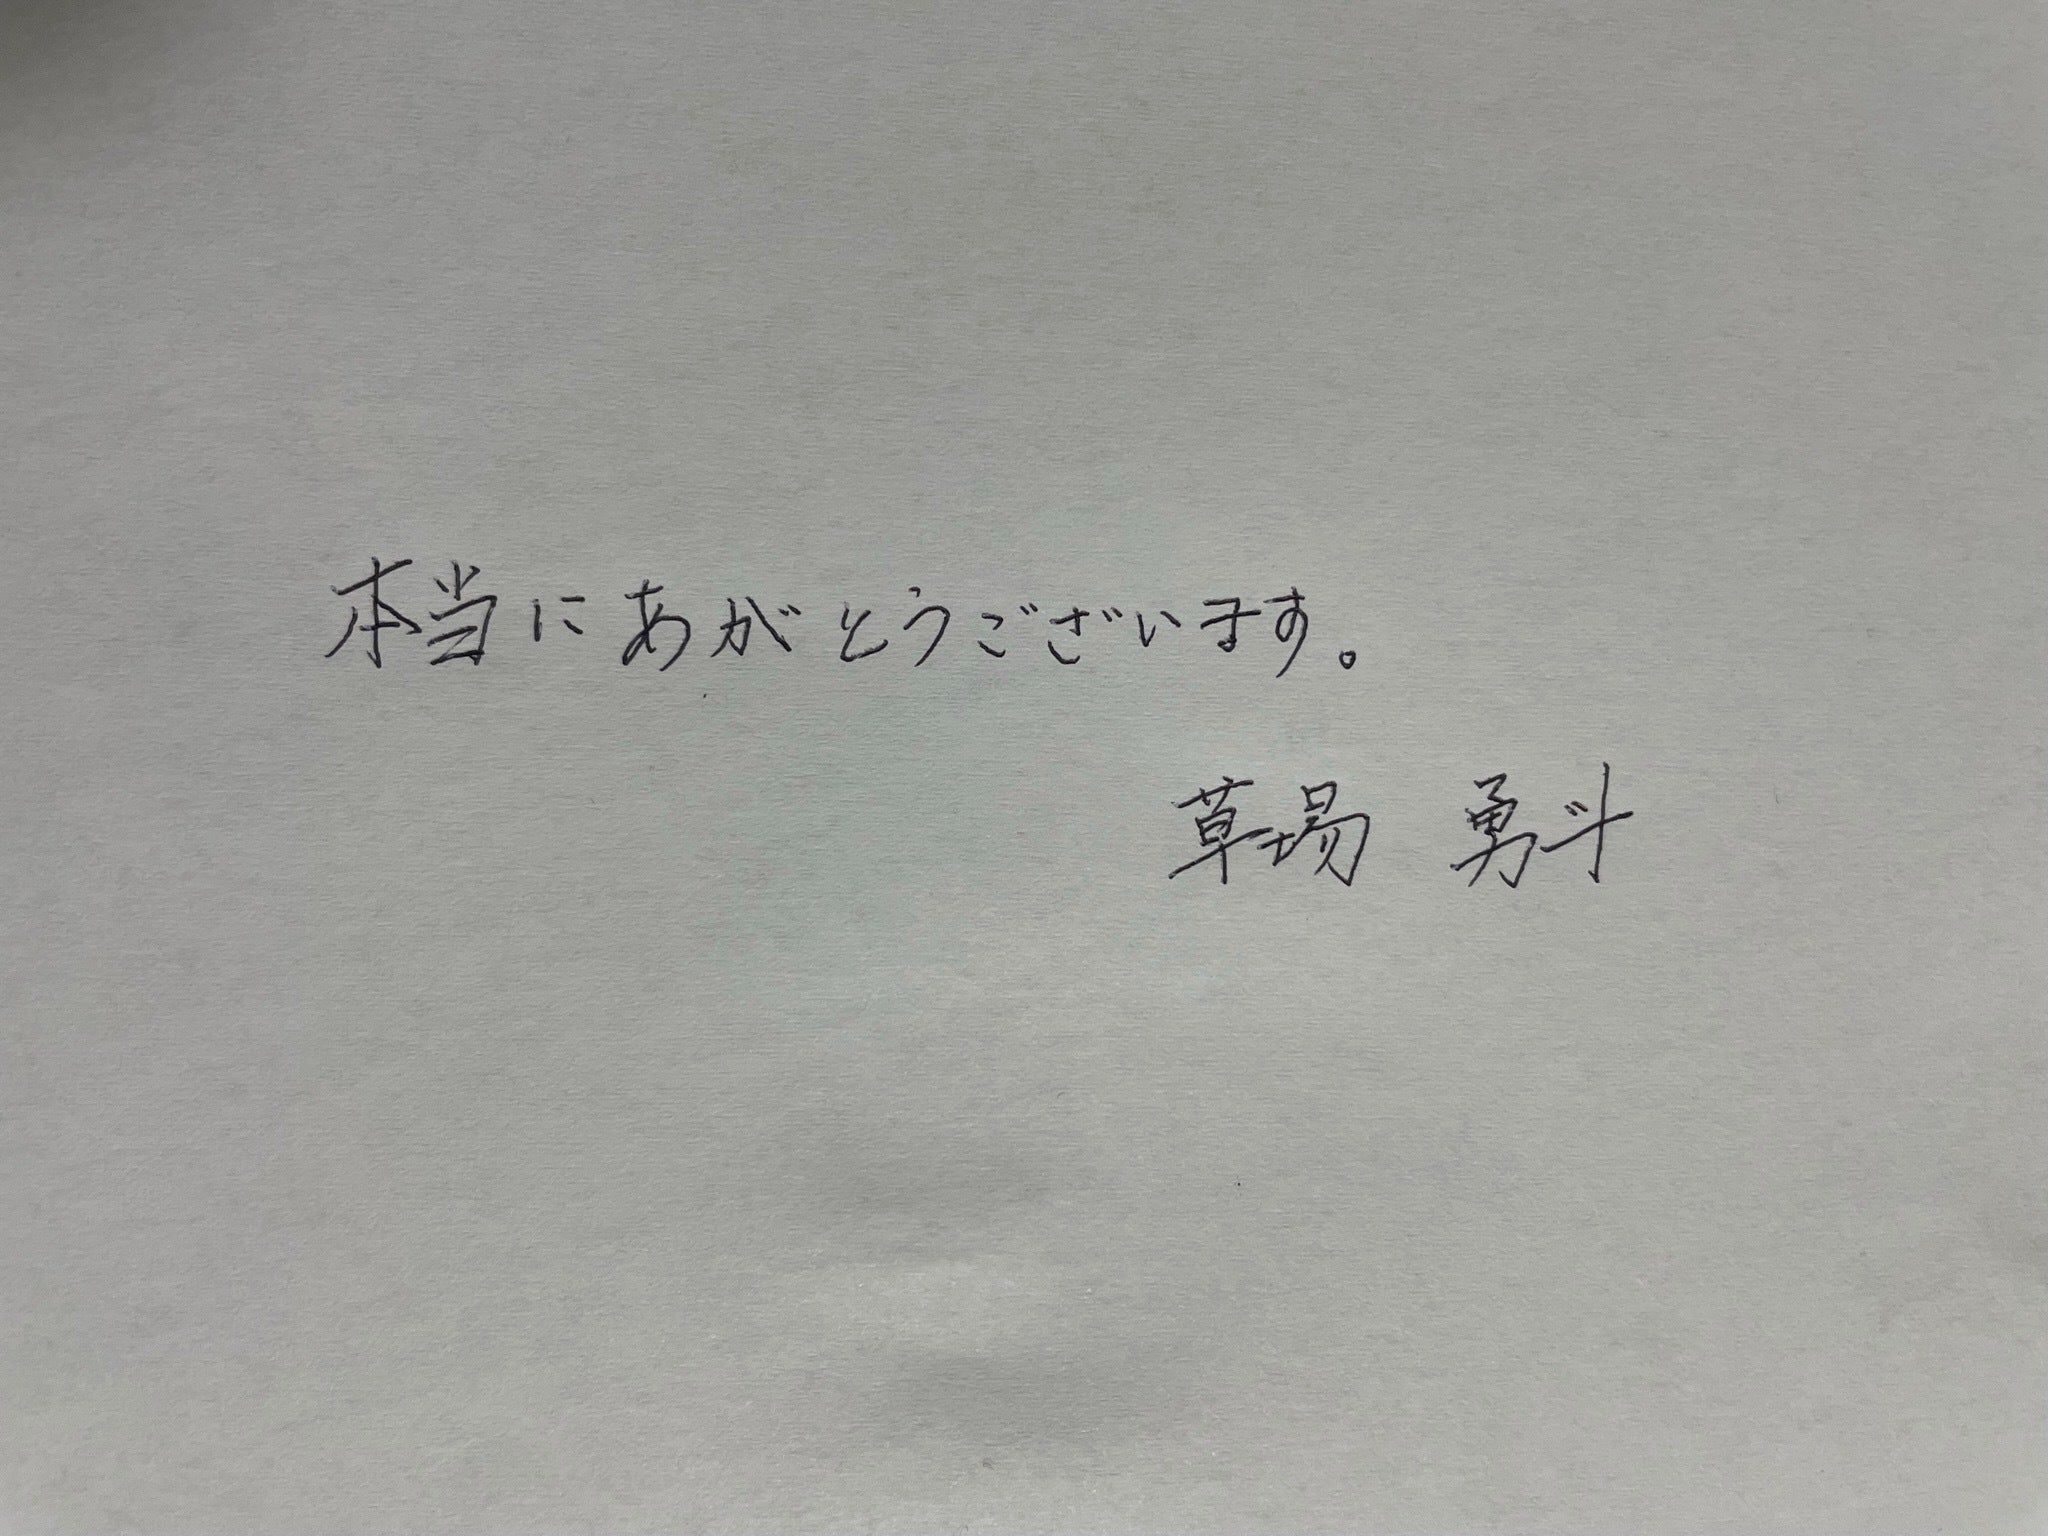 本当にあがとうございます。
草場 勇斗